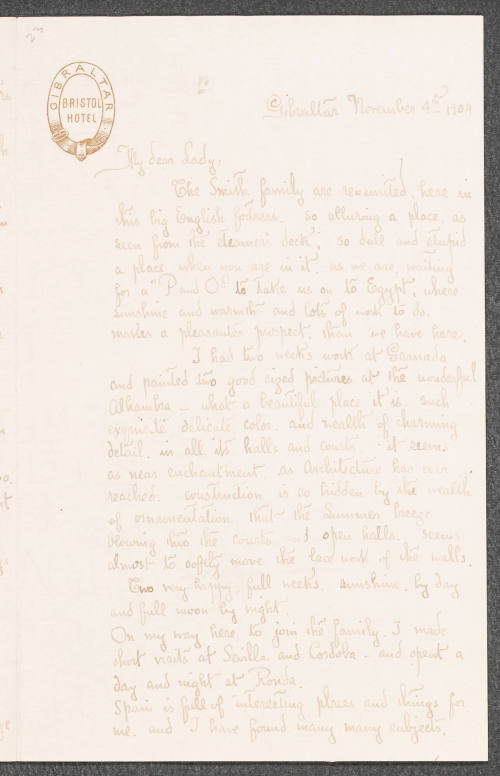 GIBRALTAR
BRISTOL
HOTEL
Gibraltar November 4th 1904
My dear Lady,
The Smith family are re-united here in
this big English fortress. so alluring a place, as
seen from the steamer's deck; so dull and stupid
a place when you are in it. as we are, waiting
for a "P and O" to take us on to Egypt, where
sunshine and warmth and lots of work to do.
makes a pleasanter prospect. than we have here.
I had two week's work at Granada
and painted two good sized pictures at the wonderful
Alhambra - what a beautiful place it is. such
exquisite delicate color. and wealth of charming
detail. in all its halls and courts. it seems.
as near enchantment as Architecture has ever
reached. construction is so hidden by the wealth
of ornamentation. that the Summer breeze
blowing thro the courts and open halls. seems
almost to softly move the lace work of the walls.
Two very happy full weeks. sunshine. by day
and full moon by night.
On my way here to join the family. I made
short visits at Sevilla and Cordova - and spent a
day and night at Ronda.
Spain is full of interesting places and things for
me. and I have found many many subjects.